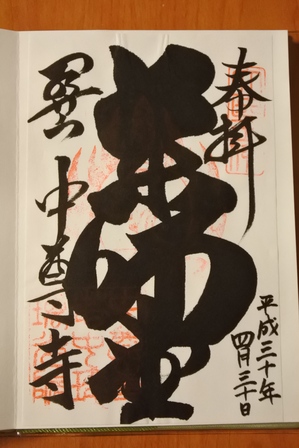 奉拝
薬師堂
関山 中尊寺
平成三十年
四月三十日